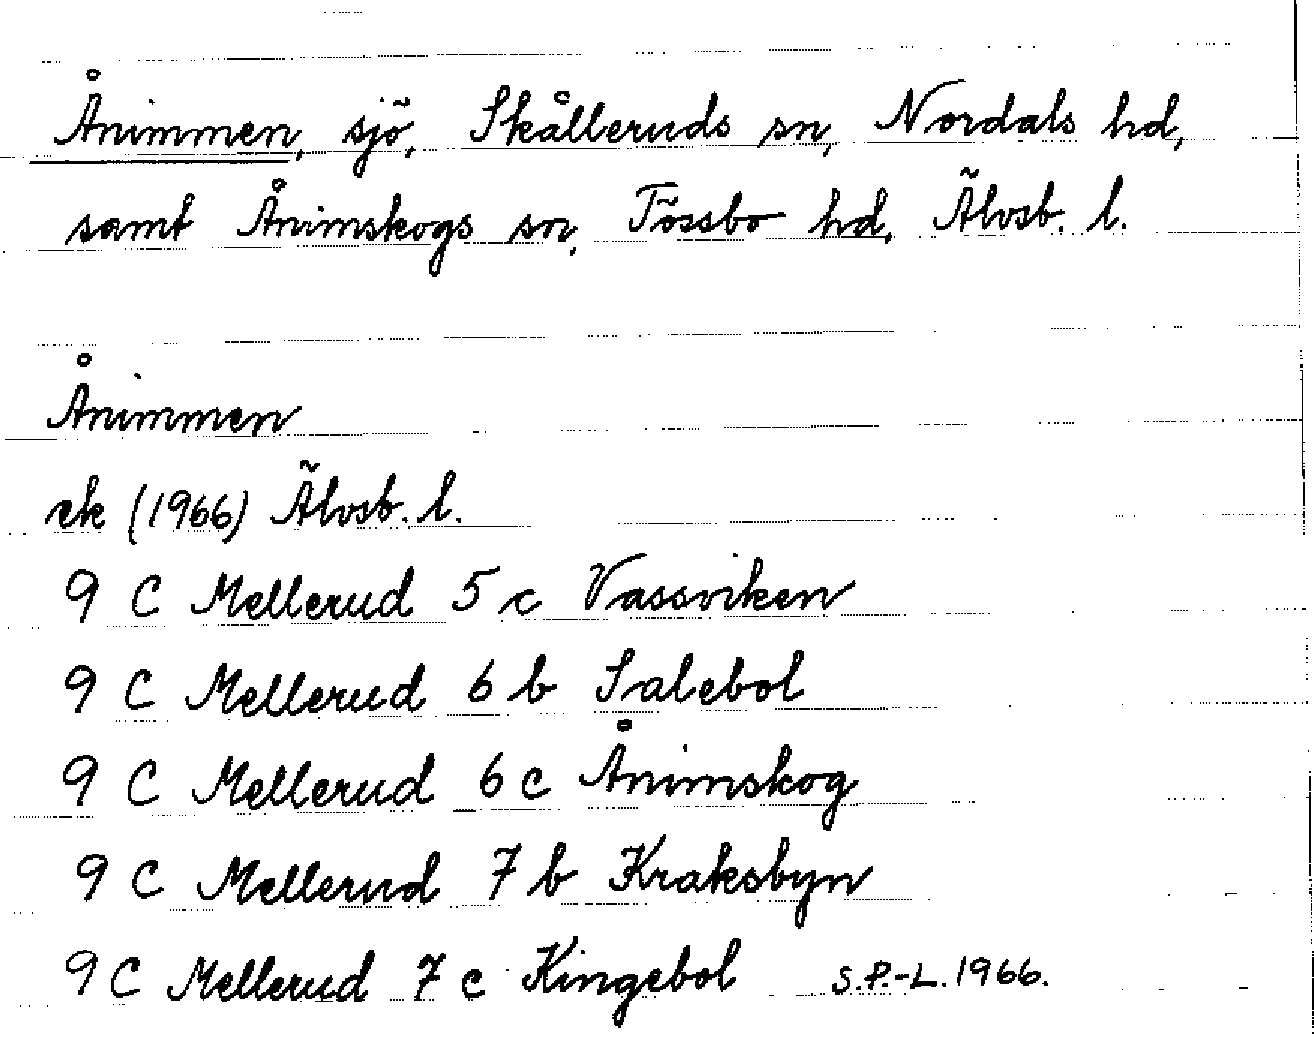 Ånimmen, sjö, Skålleruds sn, Nordals hd,
samt Ånimskogs sn, Tössbo hd, Älvsb. l.
Ånimmen
ek (1966) Älvsb. l.
9 C Mellerud 5 c Vassviken
9 C Mellerud 6 b Salebol
9 C Mellerud 6 c Ånimskog
9 C Mellerud 7 b Kraksbyn
9 C Mellerud 7 c Kingebol S.P.-L. 1966.